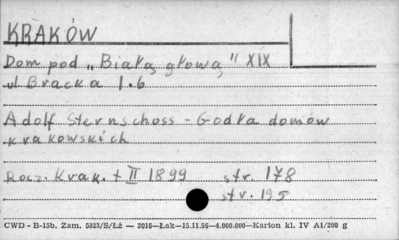 KRAKÓW
Dom pod „Białą głową" XIX
ul Bracka l. 6
Adolf Sternschoss - Godła domów
krakowskich
Rocz. Krak. t II 1899 str. 178
str. 195
CWD - B-15b. Zam. 5823/S/Łż — 2016—Łak—15.11.56—4.000.000—Karton kl. IV A1/200 g